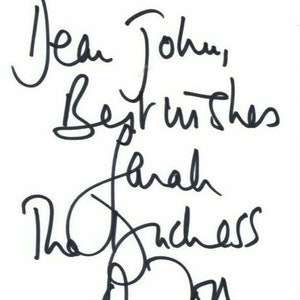 Dear John,
Best wishes
Sarah
The Duchess